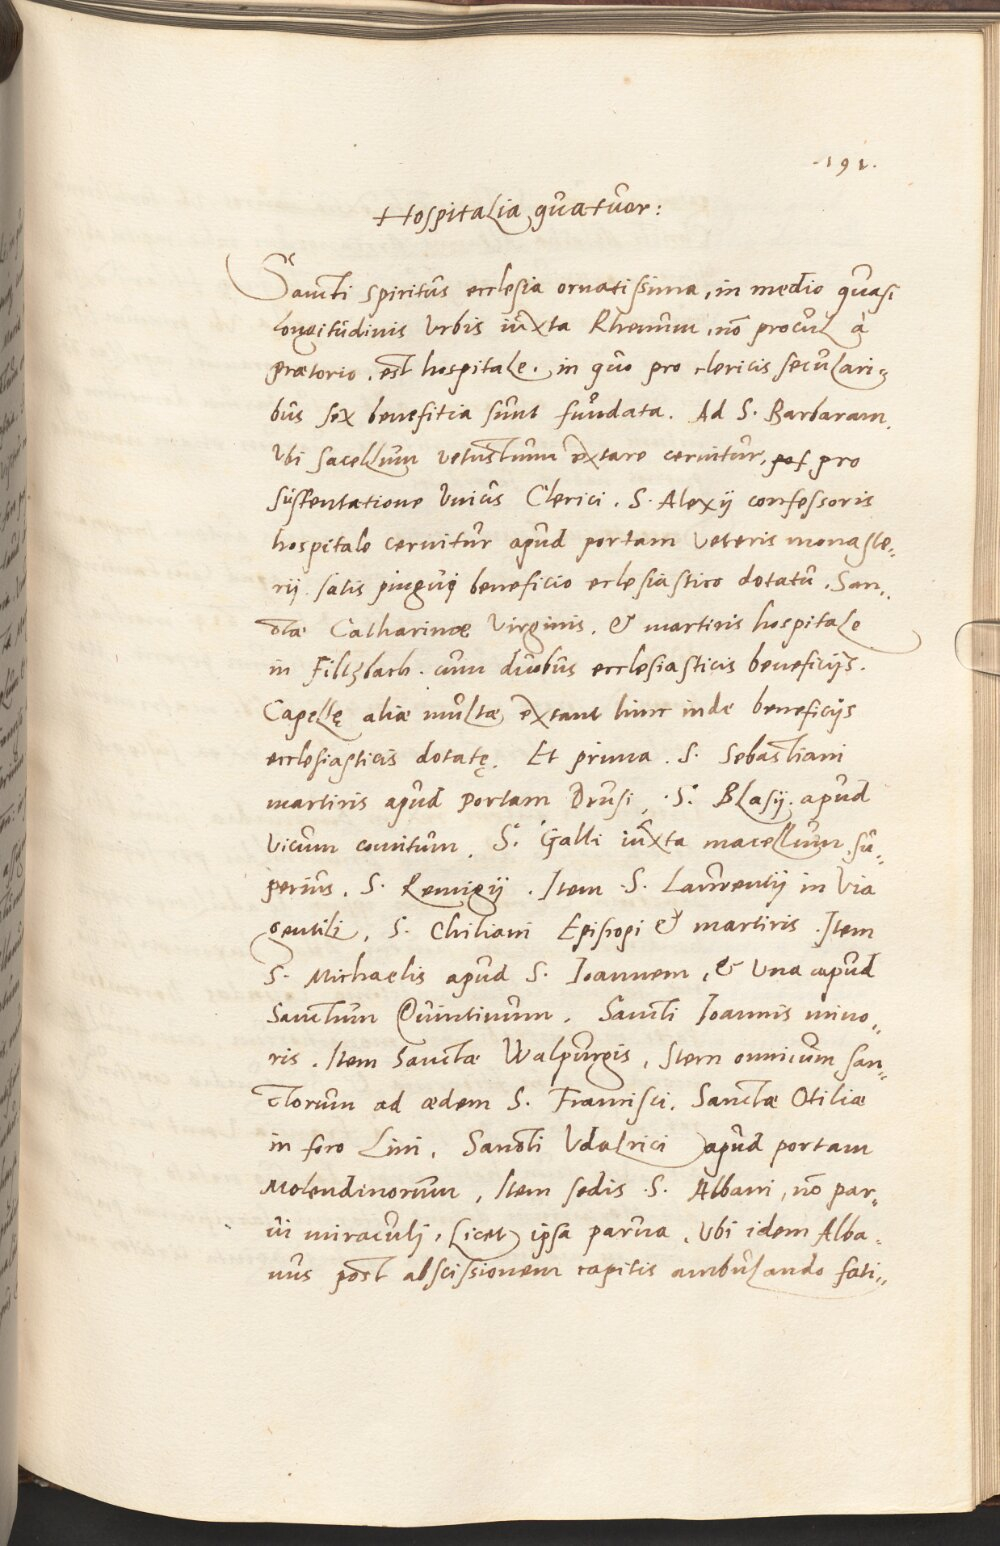 .191.
Hospitalia quatuor:
Sancti spiritus ecclesia ornatissima, in medio quasi
longitudinis Urbis iuxta Rhenum, nō procul à
prætorio, est hospitale. in quo pro clericis seculari=
bus sex benefitia sunt fundata. Ad S. Barbaram,
Ubi sacellum vetustum extare cernitur, pro
sustentatione Unicus Clerici. S. Alexij confessoris
hospitale cernitur apud portam veteris monaste=
rij satis pingui beneficio eclesiastico dotatū. San=
ctæ Catharinæ Virginis, & martiris hospitale
in Filtzbach. cum duobus ecclesiasticis beneficijs.
Capellę aliæ multæ extant hinc inde beneficijs
ecclesiasticis dotatę. Et prima. S. Sebastiani
martiris apud portam Drusi, .S. Blasij. apud
Vicum comitum, S. Galli iuxta macellum su=
perius. S. Remigij. Item .S. Laurentij in Via
gentili, S. Chiliani Episcopi & martiris. Item
S. Michaelis apud S. Ioannem, & Una apud
Sanctum Quintinum. Sancti Ioannis mino=
ris. Item Sanctæ Walpurgis, Item omnium san=
ctorum ad ædem S. Francisci. Sanctæ Otiliæ
in foro Lini, Sancti Udalrici apud portam
Molendinorum, Item sedis .S. Albani, nō par=
ui miraculi, Licet ipsa parua, Ubi idem Alba=
nus post abscissionem capitis ambulando fati=